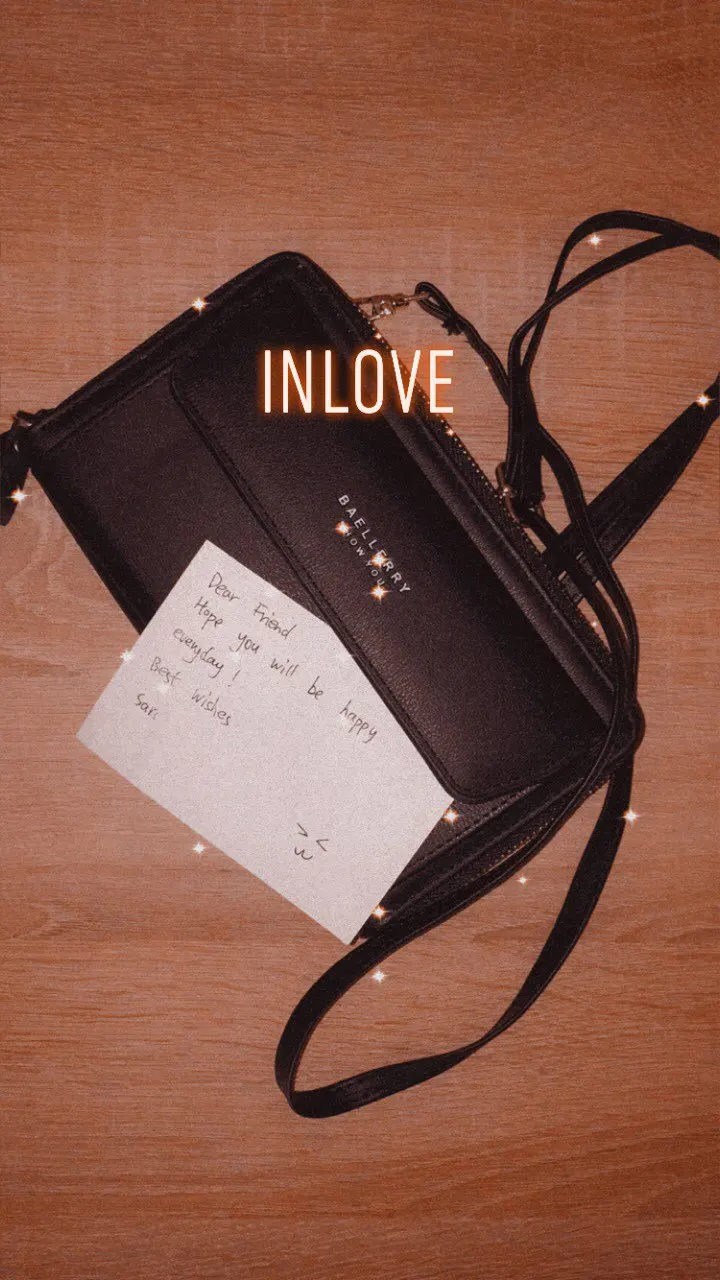 INLOVE
BAELLERRY
Dear Friend
Hope you will be happy
everyday !
Best wishes